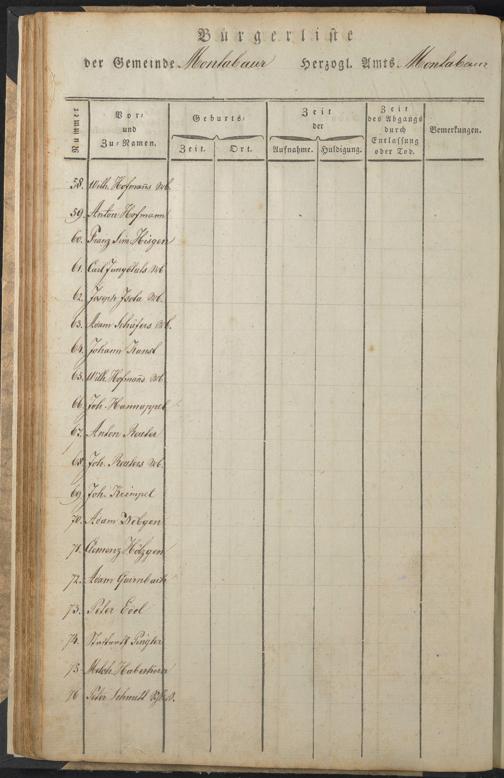 Bürgerliste
der Gemeinde Montabaur Herzogl. Amts Montabaur
Nummer
Vor- und Zu-Namen.
Geburts-
Zeit. Ort.
Zeit der
Aufnahme. Huldigung.
Zeit des Abgangs durch Entlassung oder Tod.
Bemerkungen.
58. Wilh. Hofmanns Wb.
59. Anton Hofmann
60. Franz Sim. Hisgen
61. Carl Jungbluts Wb
62. Joseph Isola Wb.
63. Adam Schäfers Wb.
64. Johann Kunst
65. Wilh. Hofmanns Wb.
66. Joh. Hannappel
67. Anton Reuter
68. Joh. Reuters Wb.
69. Joh. Krimpel
70. Adam
71. Clemenz Hölzgen
72. Adam
73. Peter Edel
74. Pingler
75. Melch. Haberkorn
76 Peter Schmidt